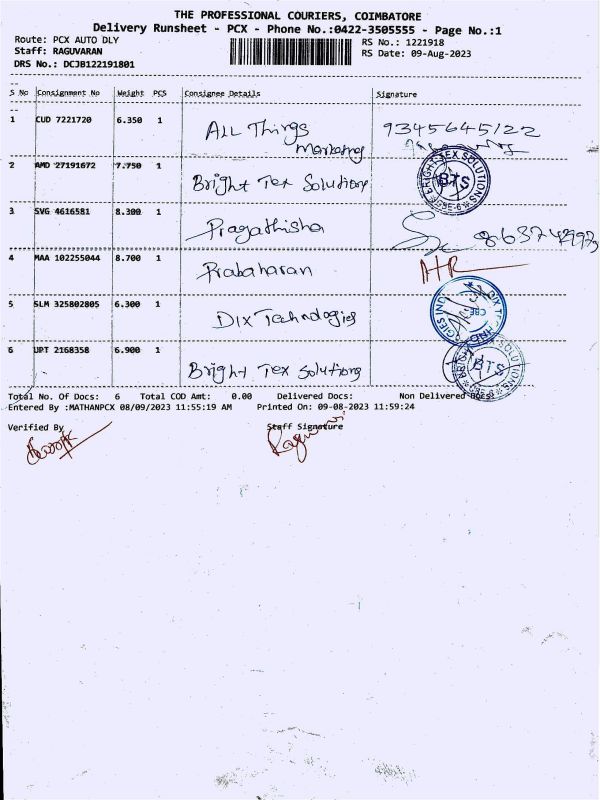 THE PROFESSIONAL COURIERS, COIMBATORE
Delivery Runsheet - PCX - Phone No.:0422-3505555 - Page No.:1
Route: PCX AUTO DLY
RS No.: 1221918
Staff: RAGUVARAN
RS Date: 09-Aug-2023
DRS No.: DCJB122191801
S No Consignment No Weight PCS Consignee Details Signature
1 CUD 7221720 6.350 1 All Things Marketing 9345645122
2 AMD 27191672 7.750 1 Bright Tex Solutions BRIGHT TEX SOLUTIONS BTS CBE-6
3 SVG 4616581 8.300 1 Pragathisha
4 MAA 102255044 8.700 1 Prabaharan
5 SLM 325802805 6.300 1 Dix Technologies CBE
6 UPT 2168358 6.900 1 Bright Tex Solutions BTS
Total No. Of Docs: 6 Total COD Amt: 0.00 Delivered Docs: Non Delivered Docs:
Entered By :MATHANPCX 08/09/2023 11:55:19 AM Printed On: 09-08-2023 11:59:24
Verified By Staff Signature